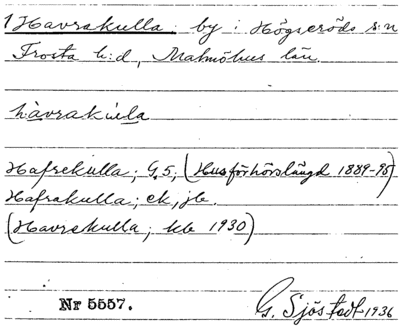 1 Havrakulla by i Högseröds s:n
Frosta h:d, Malmöhus län
hàvrakùla
Hafrekulla; G.5, (Husförhörslängd 1889-95)
Hafrakulla; ek, jb.
(Havrakulla; kb 1930)
Nr 5557.
G. Sjöstedt 1936